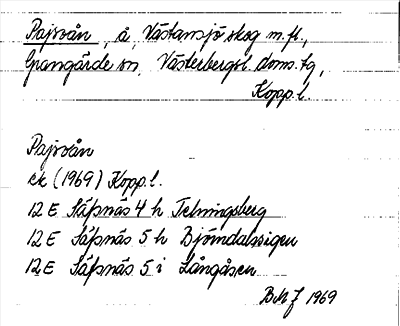 Pajsoån, å, Västansjö skog m.fl.,
Grangärde sn, Västerbergsl. doms.tg,
Kopp.l.
Pajsoån
ek (1969) Kopp.l.
12 E Säfsnäs 4 h Telningsberg
12 E Säfsnäs 5 h Björndalsvigen
12 E Säfsnäs 5 i Långåsen
1969